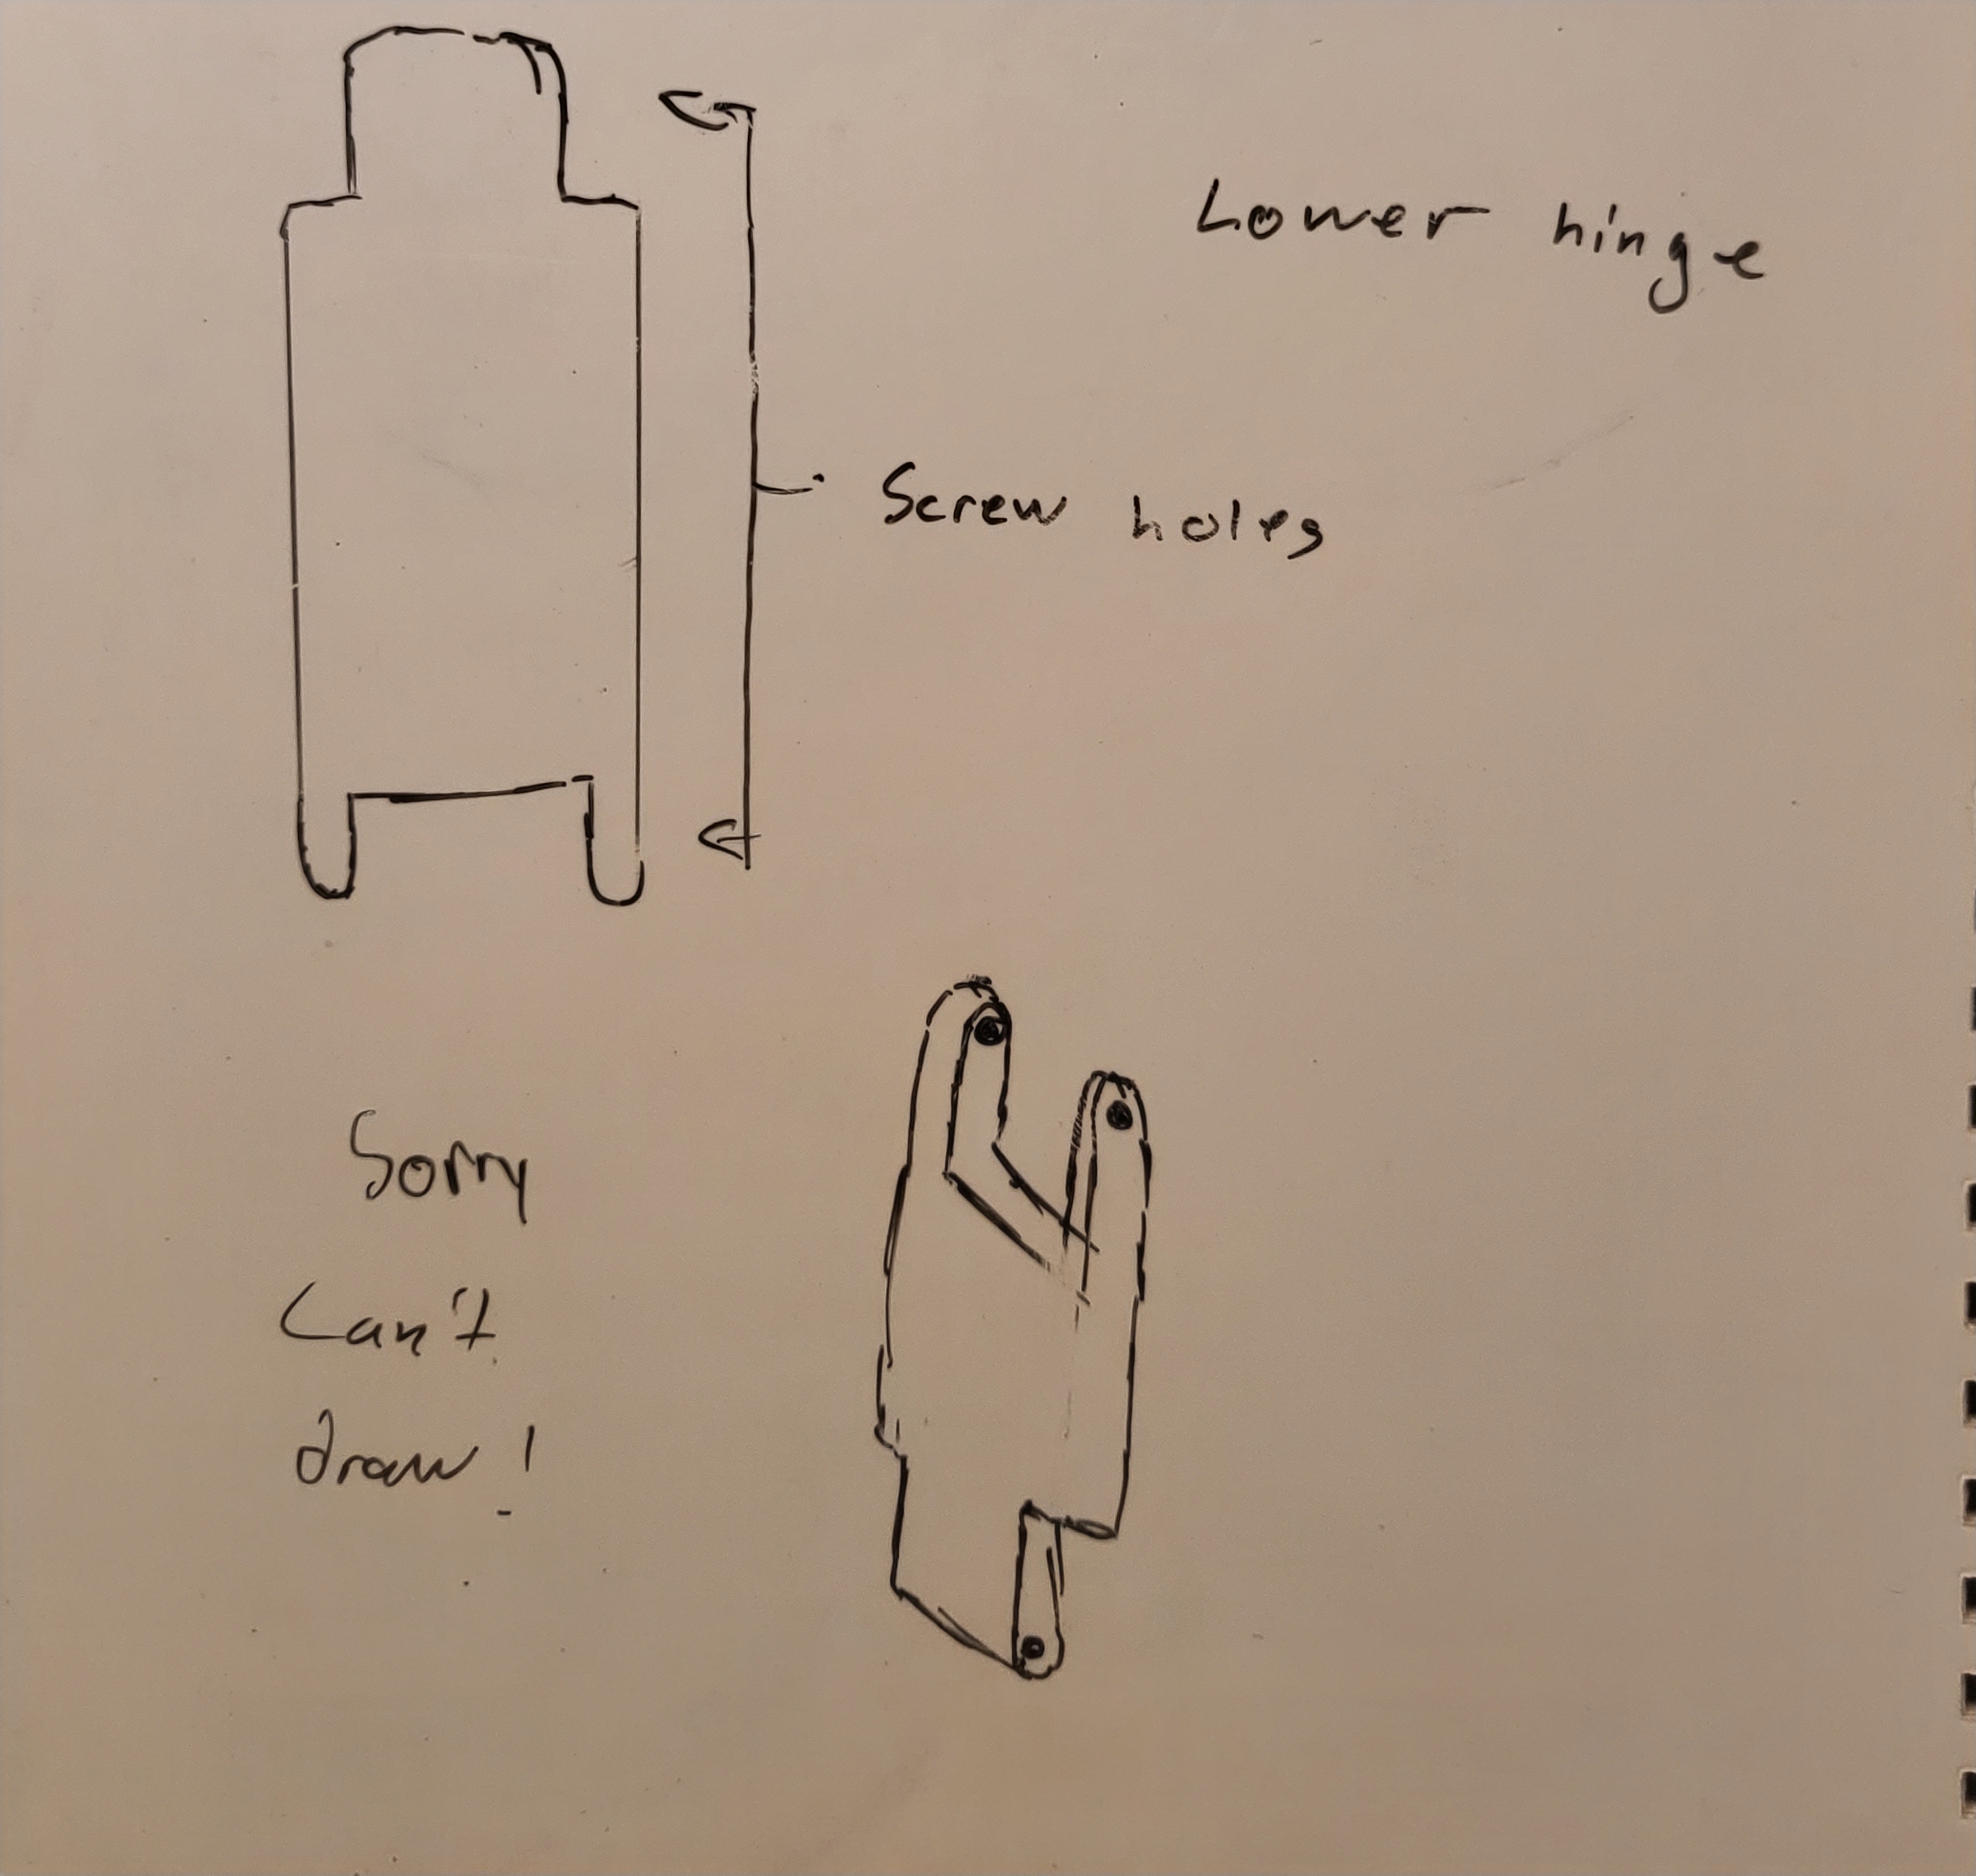 Lower hinge
Screw holes
Sorry
Can't
draw!